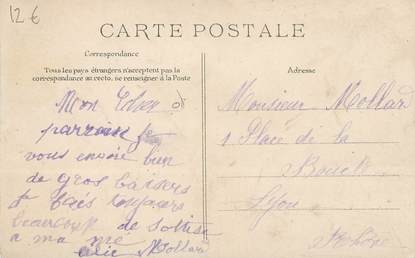 12 €
CARTE POSTALE
Correspondance
Tous les pays étrangers n'acceptent pas la
correspondance au recto, se renseigner à la Poste
Adresse
Mon Cher
parrain je
vous envoie bien
de gros baisers
je fais toujours
beaucoup de sottise
a ma mé
Mollard
Monsieur Mollard
1 Place de la
Lyon
Rhône